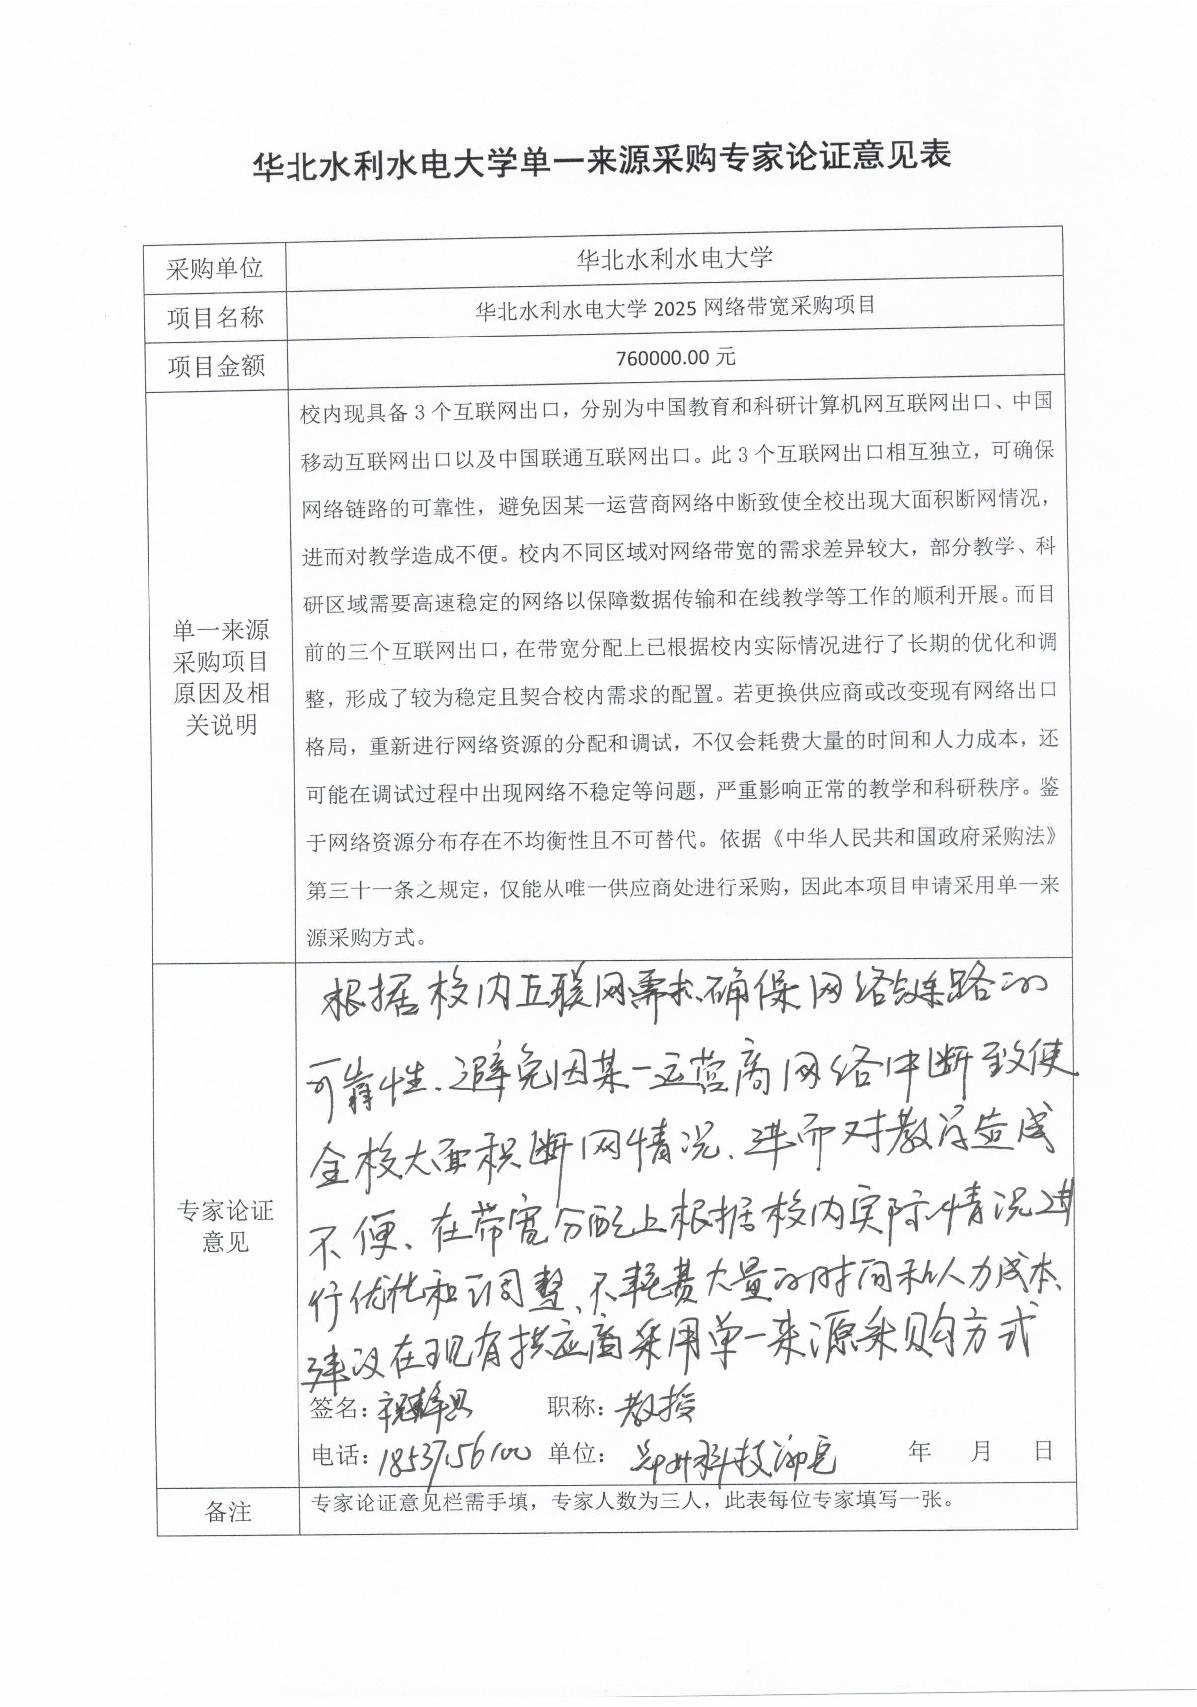 华北水利水电大学单一来源采购专家论证意见表
采购单位 华北水利水电大学
项目名称 华北水利水电大学 2025 网络带宽采购项目
项目金额 760000.00 元
单一来源
采购项目
原因及相
关说明
校内现具备 3 个互联网出口，分别为中国教育和科研计算机网互联网出口、中国
移动互联网出口以及中国联通互联网出口。此 3 个互联网出口相互独立，可确保
网络链路的可靠性，避免因某一运营商网络中断致使全校出现大面积断网情况，
进而对教学造成不便。校内不同区域对网络带宽的需求差异较大，部分教学、科
研区域需要高速稳定的网络以保障数据传输和在线教学等工作的顺利开展。而目
前的三个互联网出口，在带宽分配上已根据校内实际情况进行了长期的优化和调
整，形成了较为稳定且契合校内需求的配置。若更换供应商或改变现有网络出口
格局，重新进行网络资源的分配和调试，不仅会耗费大量的时间和人力成本，还
可能在调试过程中出现网络不稳定等问题，严重影响正常的教学和科研秩序。鉴
于网络资源分布存在不均衡性且不可替代。依据《中华人民共和国政府采购法》
第三十一条之规定，仅能从唯一供应商处进行采购，因此本项目申请采用单一来
源采购方式。
专家论证
意见
根据校内互联网需求、确保网络链路的
可靠性、避免因某一运营商网络中断致使
全校大面积断网情况、进而对教学造成
不便、在带宽分配上根据校内实际情况进
行优化和调整、不耗费大量的时间和人力成本、
建议在现有供应商采用单一来源采购方式
签名： 职称：教授
电话：18537156100 单位：郑州科技 年 月 日
备注 专家论证意见栏需手填，专家人数为三人，此表每位专家填写一张。